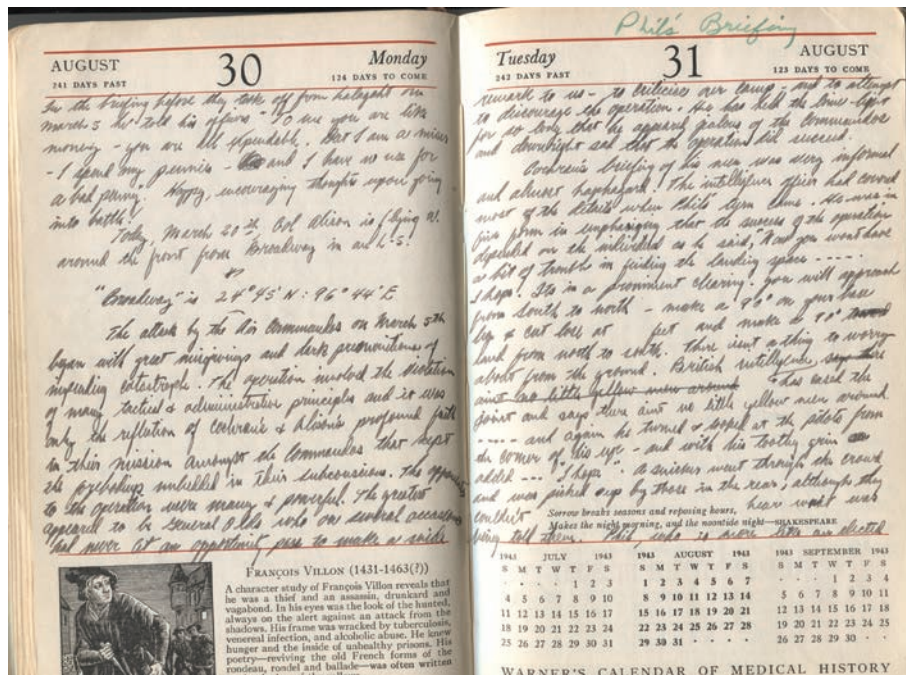 AUGUST 30 Monday
241 DAYS PAST 124 DAYS TO COME
In the briefing before they take off from Lalaghat on
March 5 he told his officers - "To me you are like
money - you are all expendable. But I am a miser
- I spend my pennies - and I have no use for
a bad penny. Happy, encouraging thoughts upon going
into battle!
Today, March 20th, Col Alison is flying
around the front from Broadway in an L-5.
"Broadway" is 24° 45' N : 96° 44' E
The attack by the Air Commandos on March 5th
began with great misgivings and dark premonitions of
impending catastrophe. The operation involved the violation
of many tactical & administrative principles and it was
only the reflection of Cochran's & Alison's profound faith
in their mission amongst the Commandos that kept
the forebodings in their subconscious. The opponents
to the operation were many & powerful. The greatest
appeared to be General Olds who on several occasions
had never let an opportunity pass to make a snide
FRANÇOIS VILLON (1431-1463(?))
A character study of François Villon reveals that
he was a thief and an assassin, drunkard and
vagabond. In his eyes was the look of the hunted,
always on the alert against an attack from the
shadows. His frame was wracked by tuberculosis,
venereal infection, and alcoholic abuse. He knew
hunger and the inside of unhealthy prisons. His
poetry—reviving the old French forms of the
rondeau, rondel and ballade—was often written
Phil's Briefing
Tuesday 31 AUGUST
242 DAYS PAST 123 DAYS TO COME
remark to us - to criticize our camp - and to attempt
to discourage the operation. He has held the lime-light
for so long that he appeared jealous of the Commandos
and downright sad that the operation did succeed.
Cochran's briefing of his men was very informal
and almost haphazard. The intelligence officer had covered
most of the details when Phil's turn came. He was in
fine form in emphasizing that the success of the operation
depended on the individual as he said, "Now you wont have
a bit of trouble in finding the landing space - - - - -
I hope. Its in a prominent clearing. you will approach
from South to north - make a 90° on your base
leg & cut lose at feet and make a 90°
land from north to south. There isn't a thing to worry
about from the ground. British intelligence say there
aint no little yellow men around has cased the
joint and says there aint no little yellow men around
- - - - - and again he turned & looked at the pilots from
the corner of his eye - and with his toothy grin
added - - - "I hope". A snicker went through the crowd
and was picked up by those in the rear, although they
couldn't hear what was
Sorrow breaks seasons and reposing hours,
Makes the night morning, and the noontide night—SHAKESPEARE
being told them. Phil, who is more like an elected
1943 JULY 1943
S M T W T F S
· · · · 1 2 3
4 5 6 7 8 9 10
11 12 13 14 15 16 17
18 19 20 21 22 23 24
25 26 27 28 29 30 31
1943 AUGUST 1943
S M T W T F S
1 2 3 4 5 6 7
8 9 10 11 12 13 14
15 16 17 18 19 20 21
22 23 24 25 26 27 28
29 30 31 · · · ·
1943 SEPTEMBER 1943
S M T W T F S
· · · 1 2 3 4
5 6 7 8 9 10 11
12 13 14 15 16 17 18
19 20 21 22 23 24 25
26 27 28 29 30 · ·
WARNER'S CALENDAR OF MEDICAL HISTORY